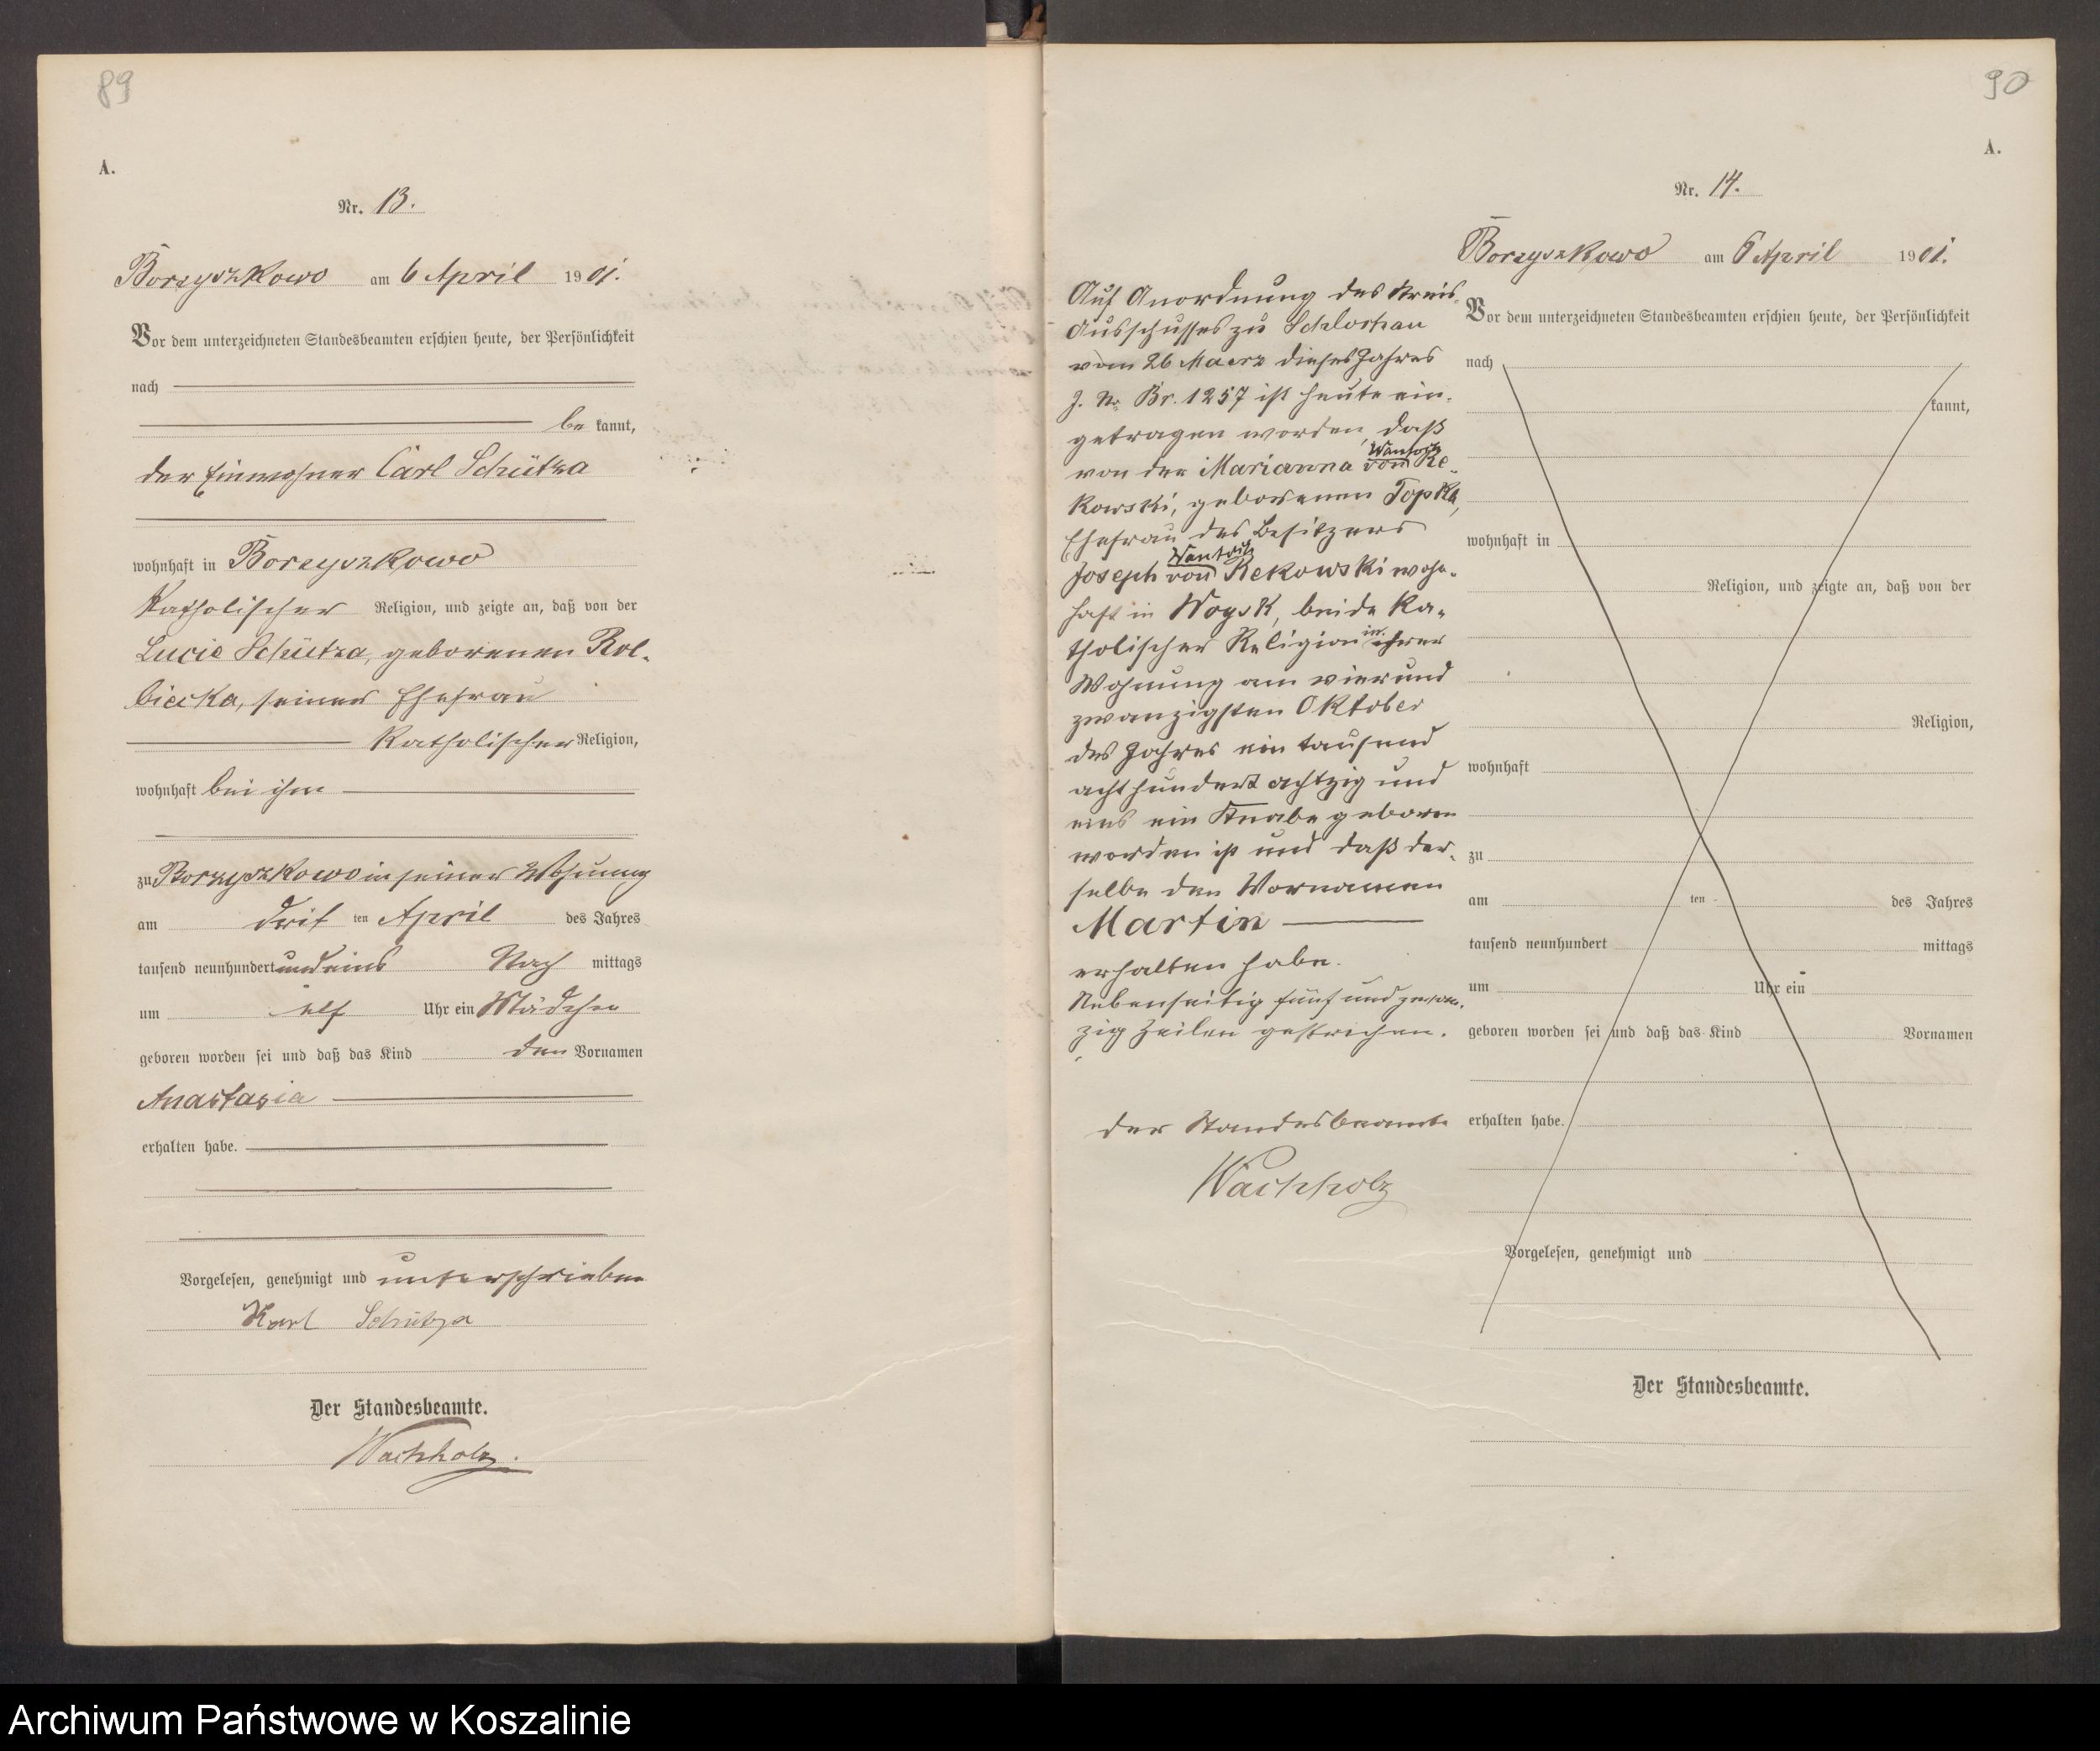 89
A.
Nr. 13.
Borzyszkowo am 6 April 1901.
Vor dem unterzeichneten Standesbeamten erschien heute, der Persönlichkeit
nach
be kannt,
der Einwohner Carl Schütza
wohnhaft in Borzyszkowo
katholischer Religion, und zeigte an, daß von der
Lucie Schütza, geborenen Rol-
biecka, seiner Ehefrau
katholischer Religion,
wohnhaft bei ihm
zu Borzyszkowo in seiner Wohnung
am drit ten April des Jahres
tausend neunhundert und eins Nach mittags
um elf Uhr ein Mädchen
geboren worden sei und daß das Kind den Vornamen
Anastasia
erhalten habe.
Vorgelesen, genehmigt und unterschrieben
Karl Schütza
Der Standesbeamte.
Wachholz.
90
A.
Nr. 14.
Borzyszkowo am 6 April 1901.
Auf Anordnung des Kreis-
Ausschusses zu Schlochau
vom 26 Maerz dieses Jahres
J. Nr. Br. 1257 ist heute ein-
getragen worden, daß
von der Marianna Wantoch von Re-
kowski, geborenen Topka,
Ehefrau des Besitzers
Joseph Wantoch von Rekowski wohn-
haft in Woysk, beide ka-
tholischer Religion in ihrer
Wohnung am vierund
zwanzigsten Oktober
des Jahres ein tausend
acht hundert achtzig und
eins ein Knabe geboren
worden ist und daß der-
selbe den Vornamen
Martin
erhalten habe.
Nebenseitig fünf und zwan-
zig Zeilen gestrichen.
der Standesbeamte
Wachholz
Vor dem unterzeichneten Standesbeamten erschien heute, der Persönlichkeit
nach
kannt,
wohnhaft in
Religion, und zeigte an, daß von der
Religion,
wohnhaft
zu
am ten des Jahres
tausend neunhundert mittags
um Uhr ein
geboren worden sei und daß das Kind Vornamen
erhalten habe.
Vorgelesen, genehmigt und
Der Standesbeamte.
Archiwum Państwowe w Koszalinie